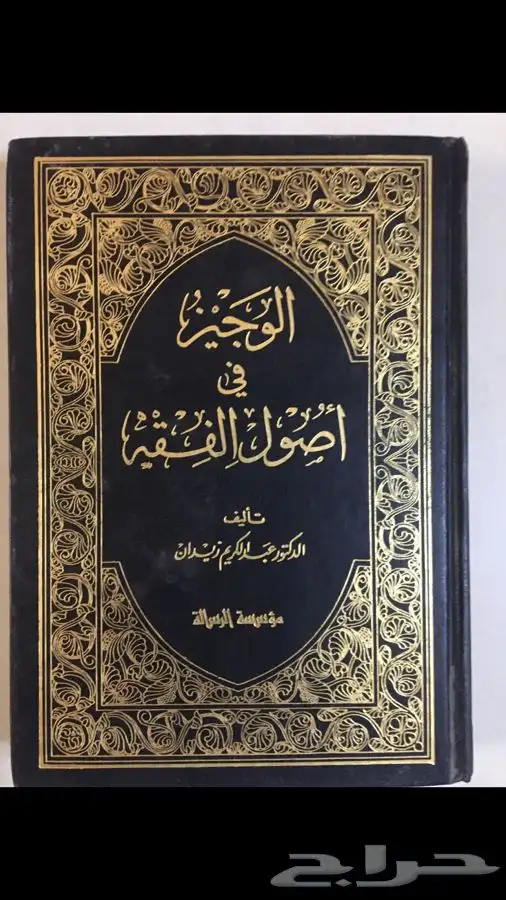 الوجيز
في
أصول الفقه
تأليف
الدكتور عبد الكريم زيدان
مؤسسة الرسالة
حراج